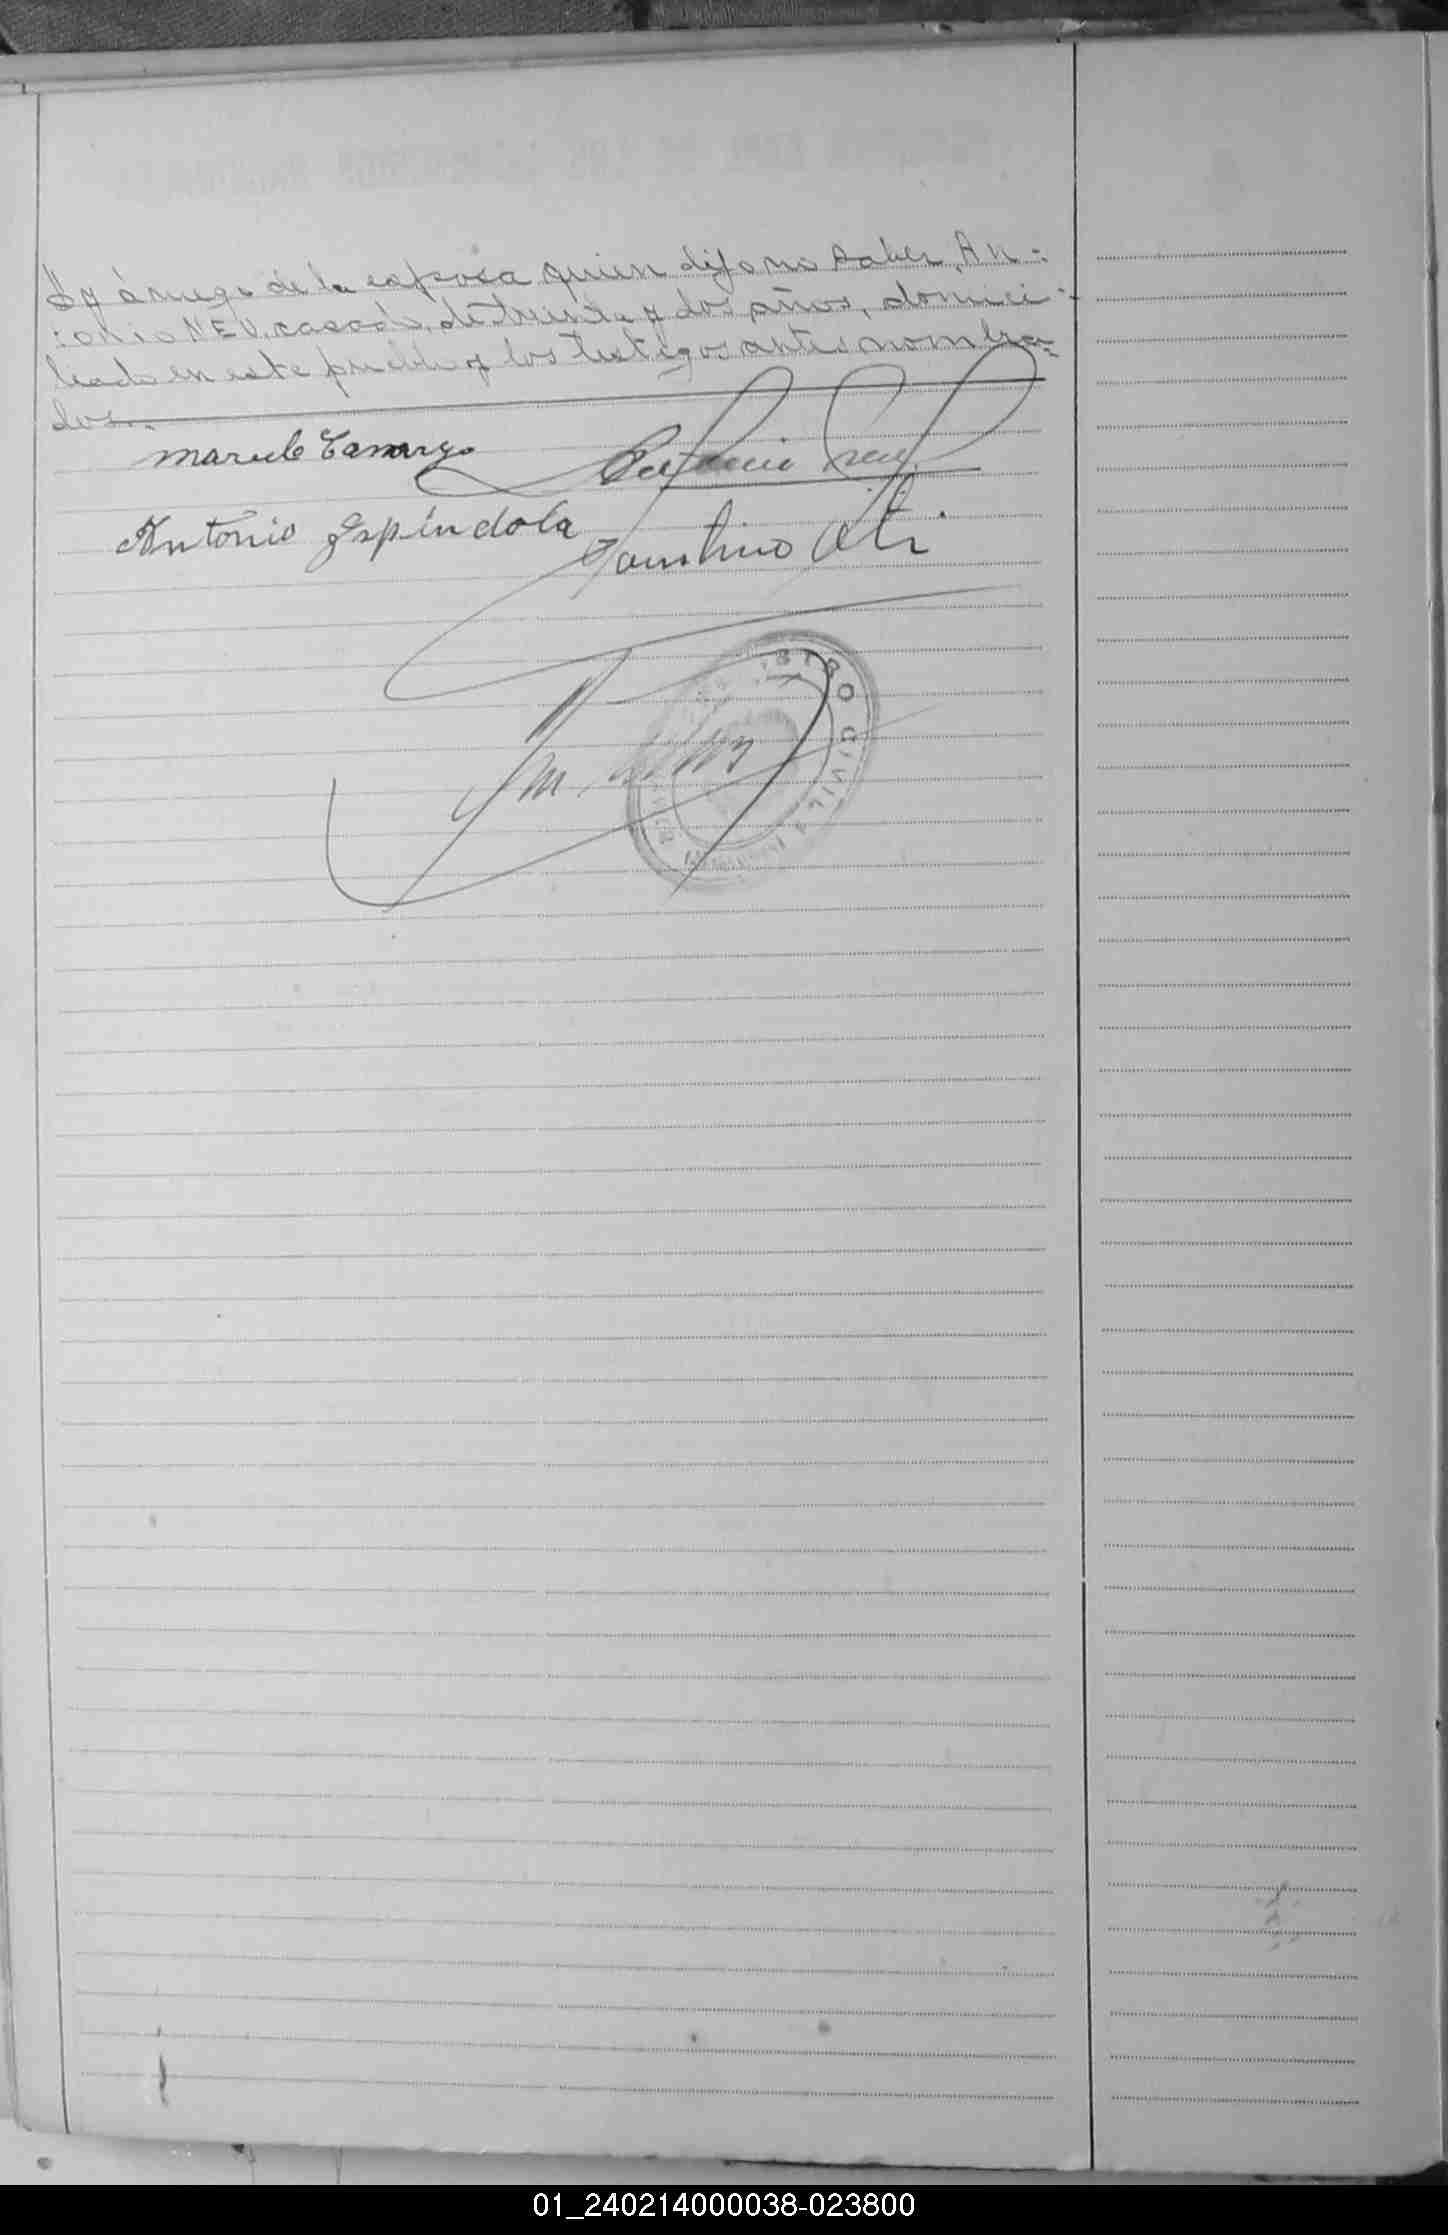 y á ruego de la esposa quien dijo no saber, An=
=onio NEU, casado, de treinta y dos años, domici=
liado en este pueblo y los testigos antes nombra=
dos.
Marcelo Camargo
Antonio
Antonio Espíndola
Faustino
REGISTRO CIVIL
01_240214000038-023800